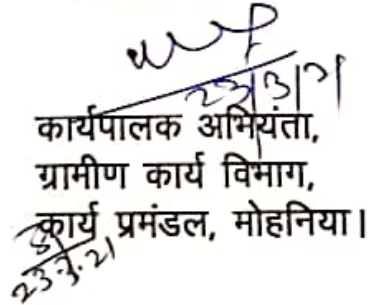 23/3/21
कार्यपालक अभियंता,
ग्रामीण कार्य विभाग,
कार्य प्रमंडल, मोहनिया।
23.3.21